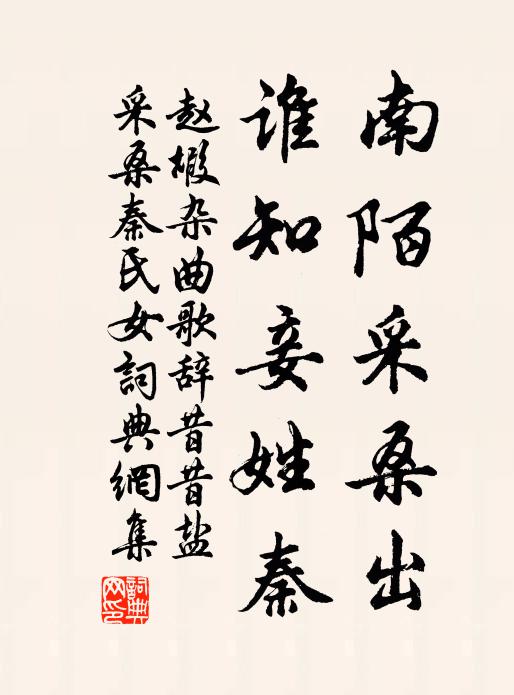 南陌采桑出
谁知妾姓秦
赵嘏杂曲歌辞昔昔盐
采桑秦氏女詞典網集
詞典网印